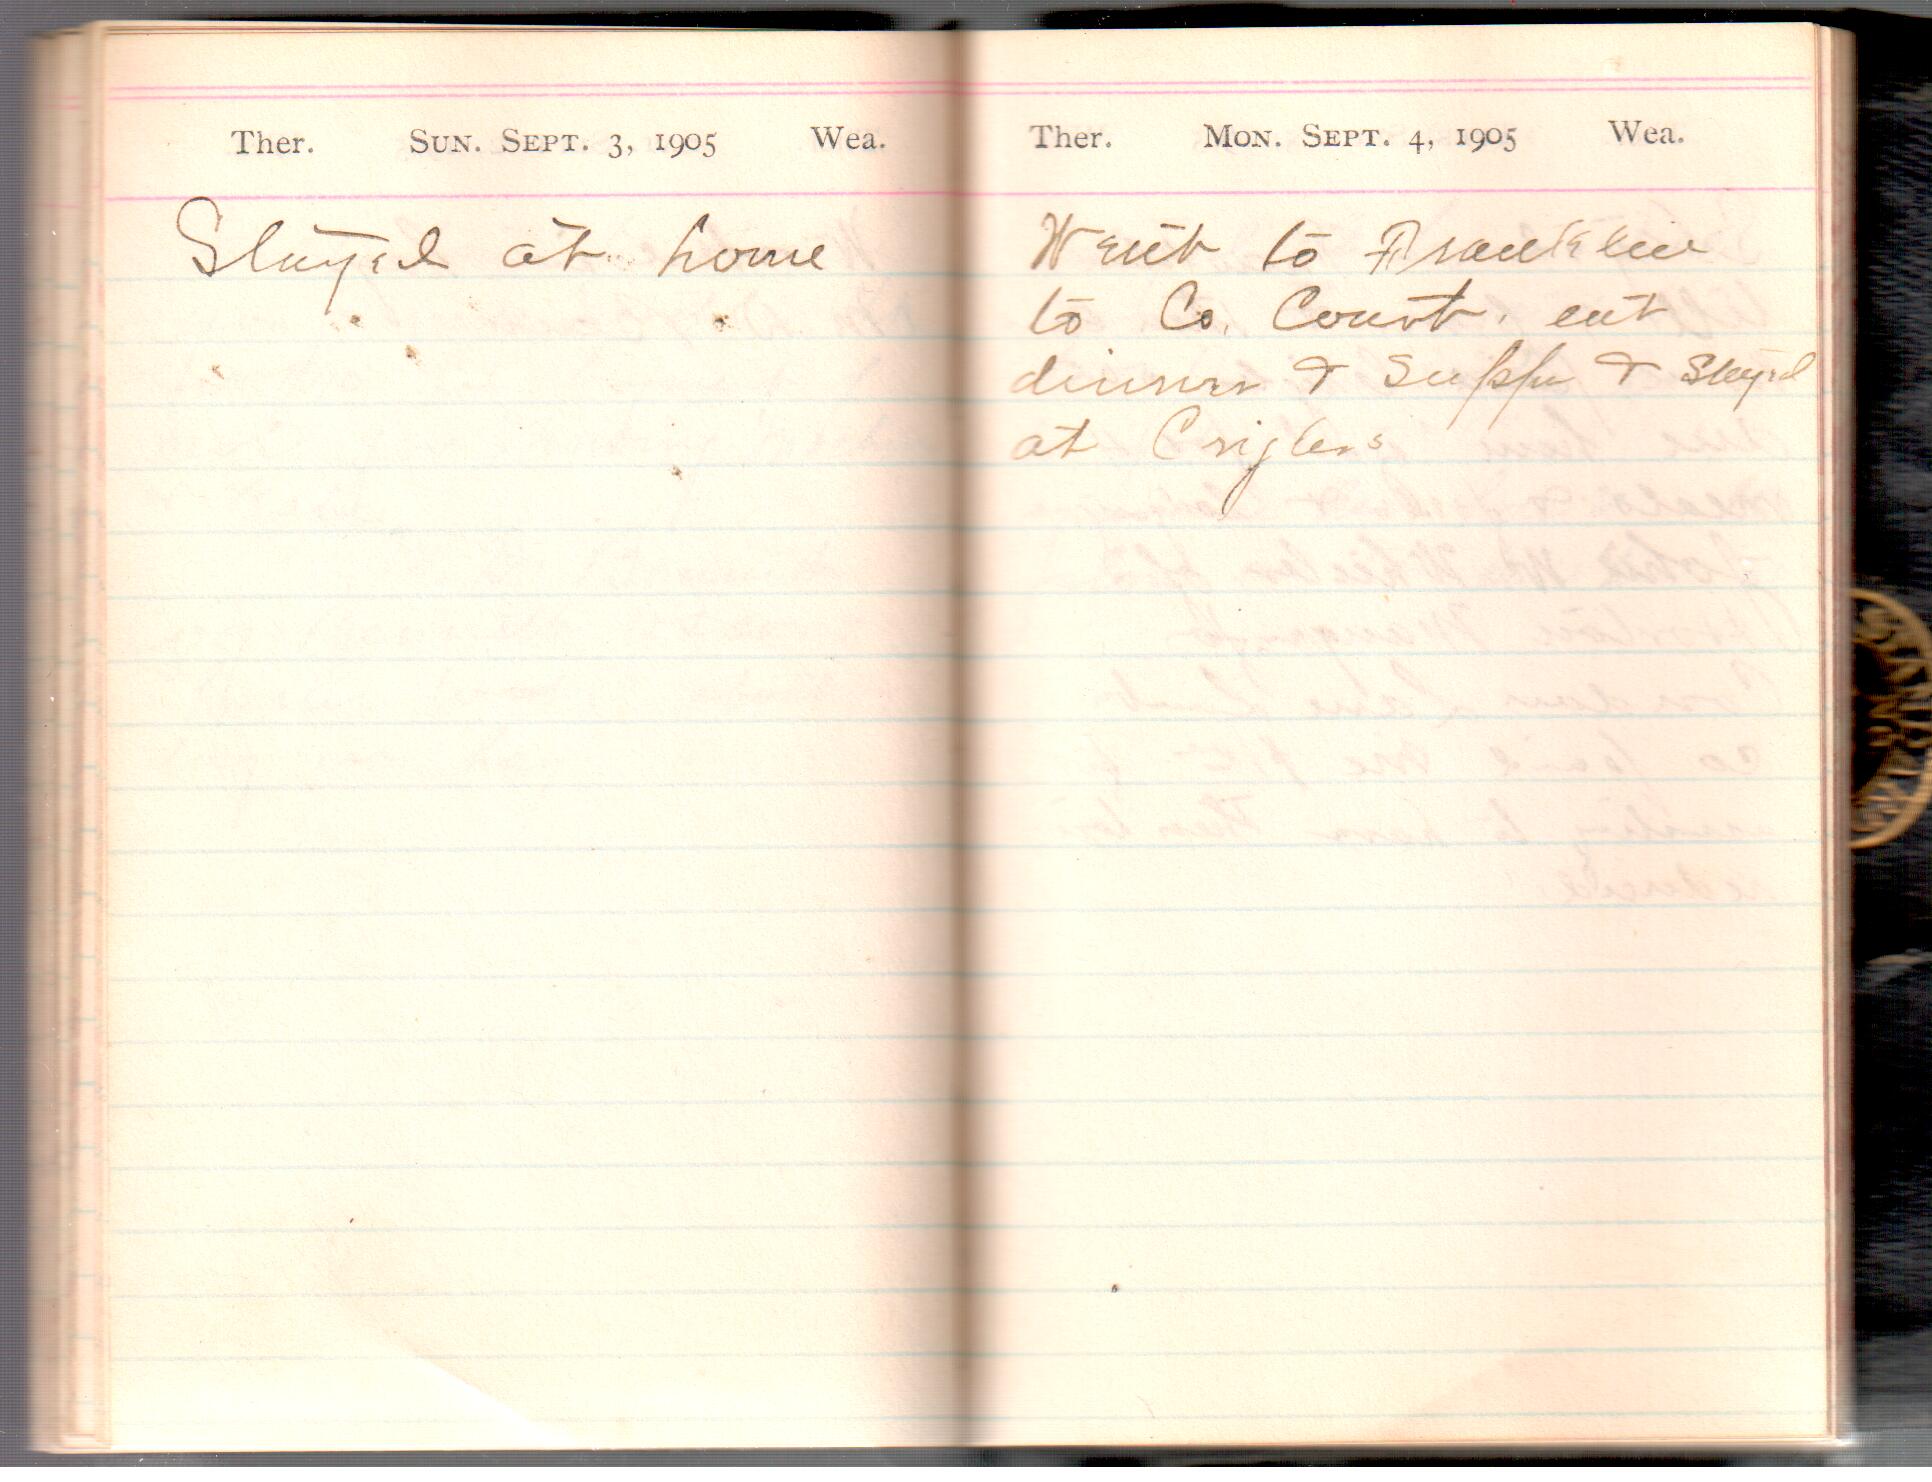 Ther. Sun. Sept. 3, 1905 Wea.
Stayed at home
Ther. Mon. Sept. 4, 1905 Wea.
Went to Franklin
to Co. Court. eat
dinner & Supper & Stayed
at Criglers